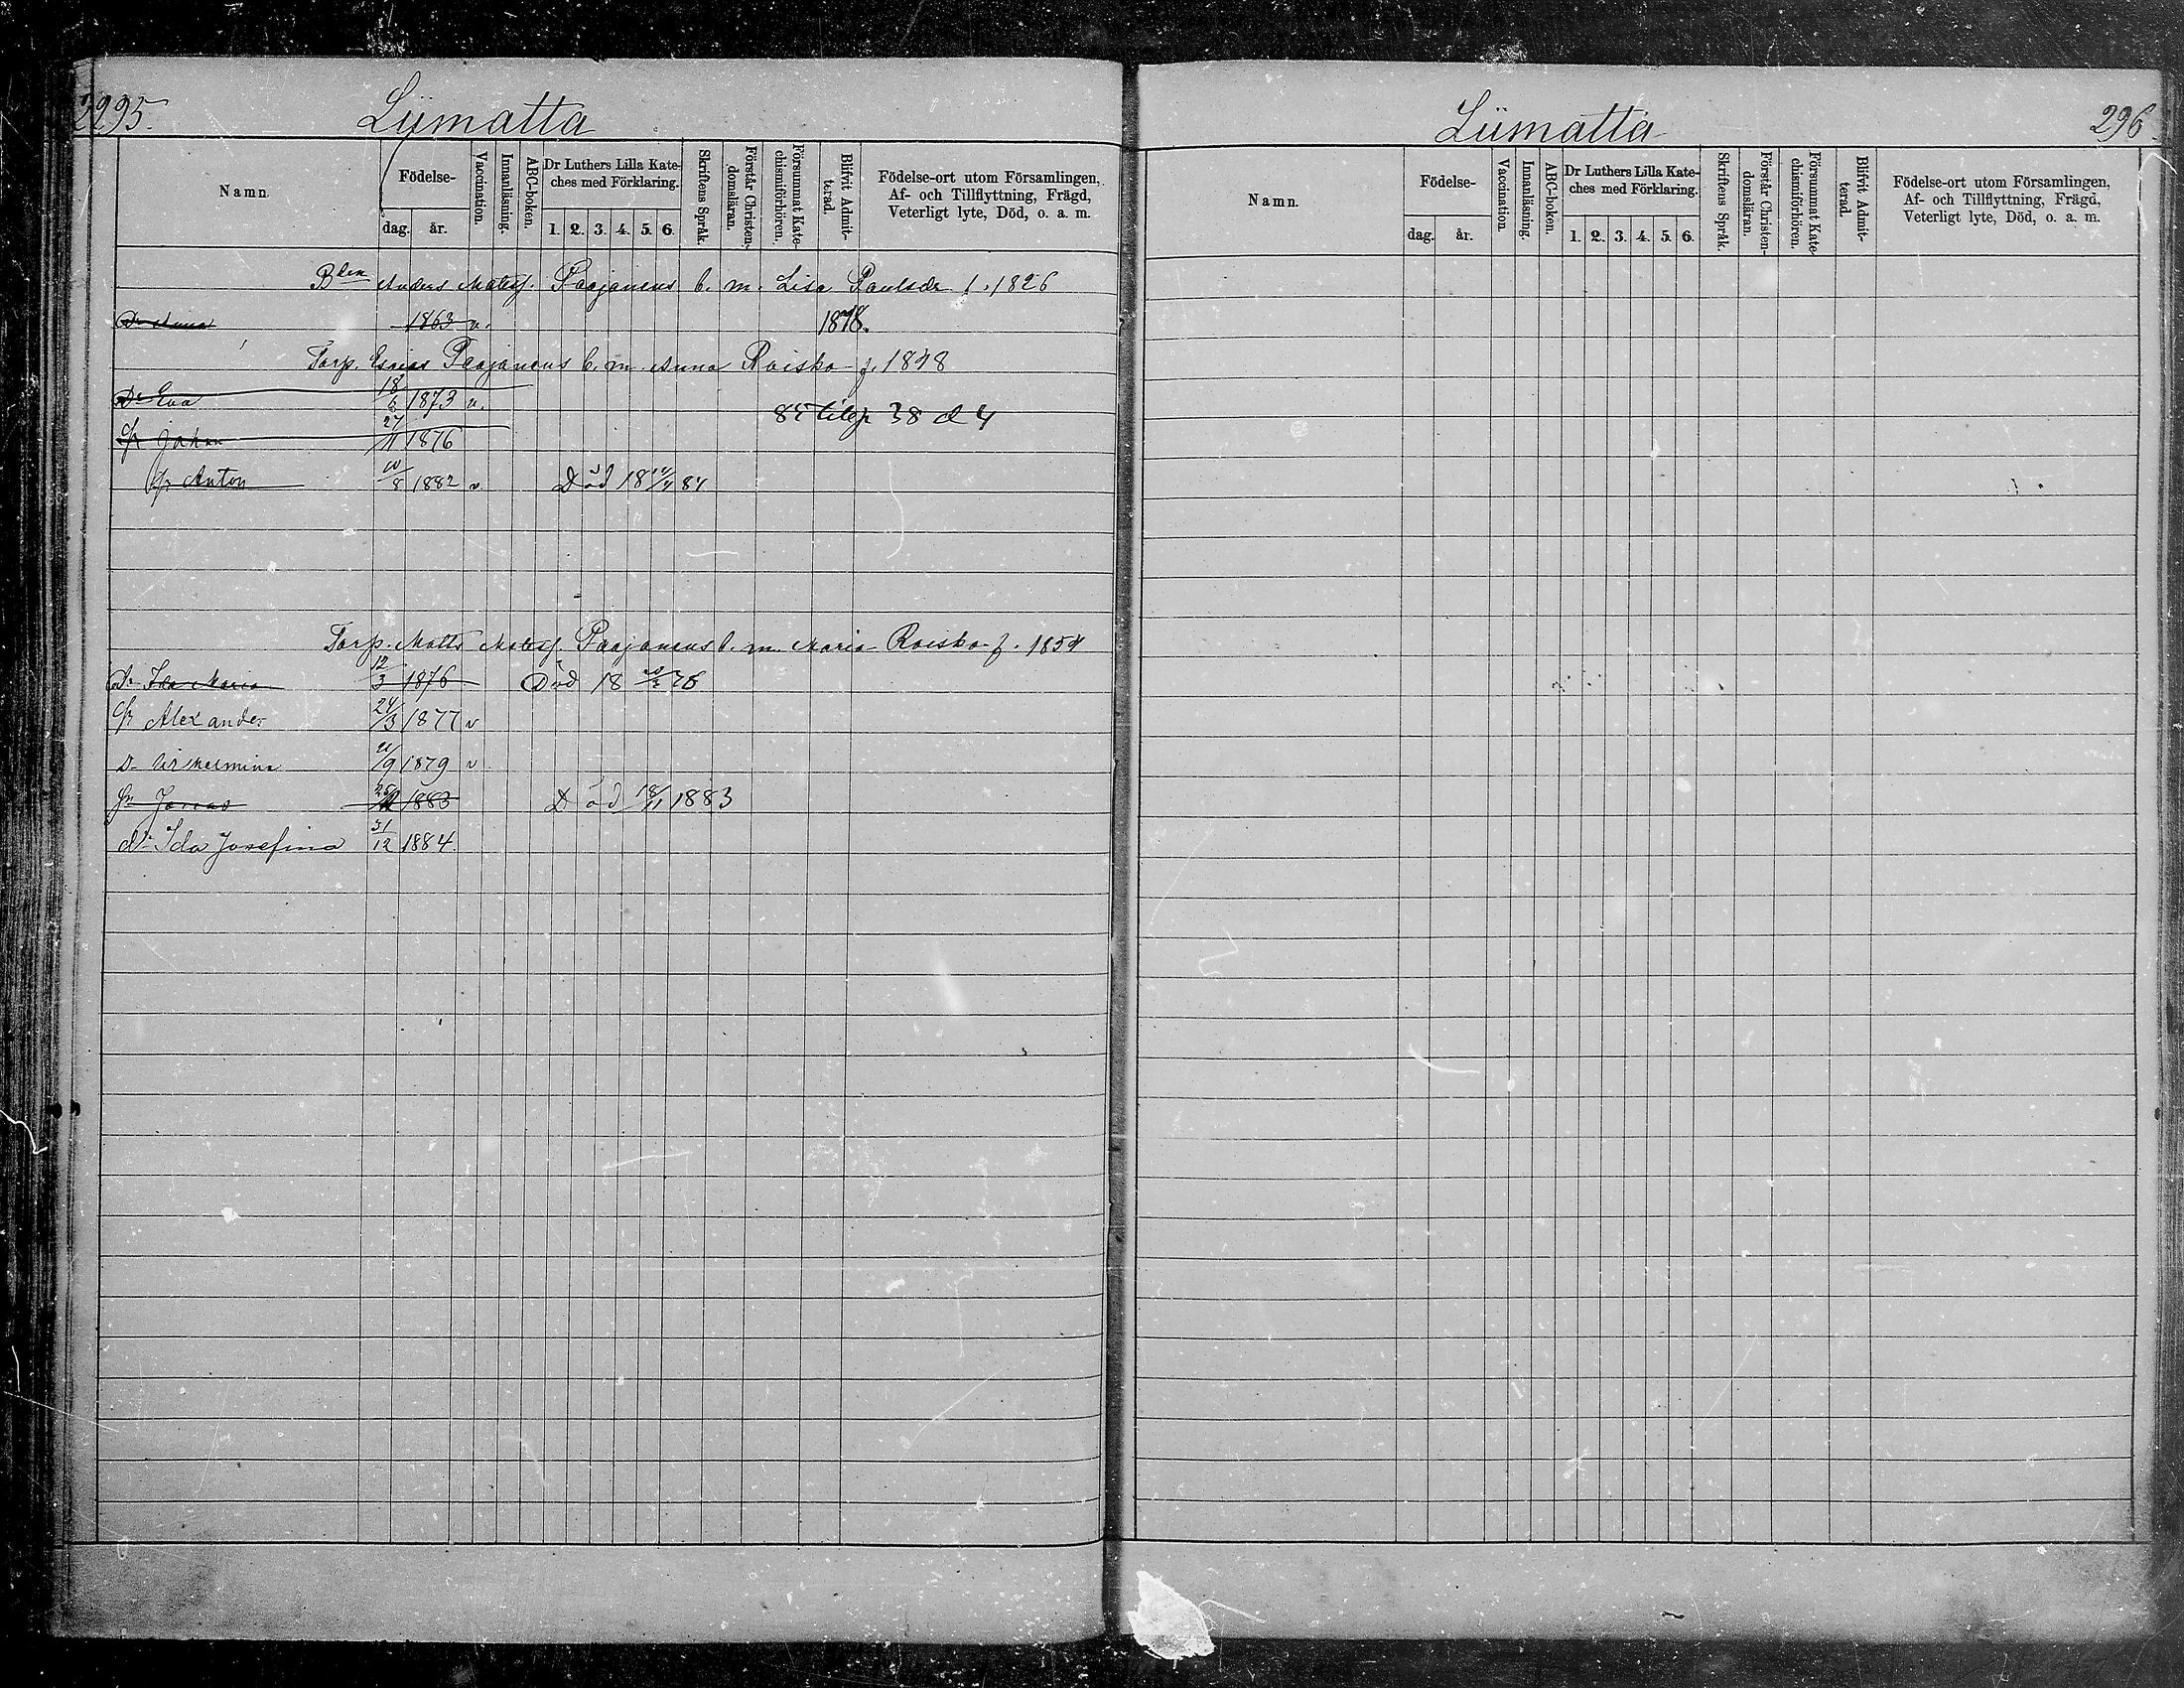 295.
Liimatta
Namn.
Födelse-
dag. år.
Vaccination.
Innanläsning.
ABC-boken.
Dr Luthers Lilla Kate-
ches med Förklaring.
1. 2. 3. 4. 5. 6.
Skriftens Språk.
Förstår Christen-
domsläran.
Försummat Kate-
chismiförhören.
Blifvit Admit-
terad.
Födelse-ort utom Församlingen,
Af- och Tillflyttning, Frägd,
Veterligt lyte, Död, o. a. m.
Bden Anders Matss. Paajanens b. m. Lisa Paulsdr f. 1826
Dr Anna 1863 v. 1878.
Torp. Esaias Paajanens b. m. Anna Roisko f. 1848
Dr Eva 18/6 1873 v.
85 38 d 4
Sn Johan 27/11 1876
Sn Anton 10/8 1882 v Död
Torp. Matts Matss. Paajanens b. m. Maria Roisko f. 1854
Dr Ida Maria 12/3 1876 Död 18 76
Sn Alexander 24/3 1877 v
Dr Vilhelmina 21/9 1879 v
Sn Jonas 1883 Död 18/11 1883
dr Ida Josefina 31/12 1884.
Liimatta
296.
Namn.
Födelse-
dag. år.
Vaccination.
Innanläsning.
ABC-boken.
Dr Luthers Lilla Kate-
ches med Förklaring.
1. 2. 3. 4. 5. 6.
Skriftens Språk.
Förstår Christen-
domsläran.
Försummat Kate-
chismiförhören.
Blifvit Admit-
terad.
Födelse-ort utom Församlingen,
Af- och Tillflyttning, Frägd,
Veterligt lyte, Död, o. a. m.